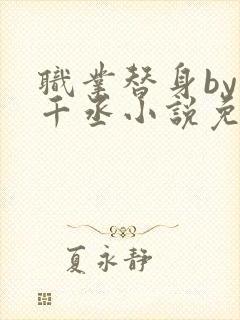 職業替身by
千丞小說免
夏永静